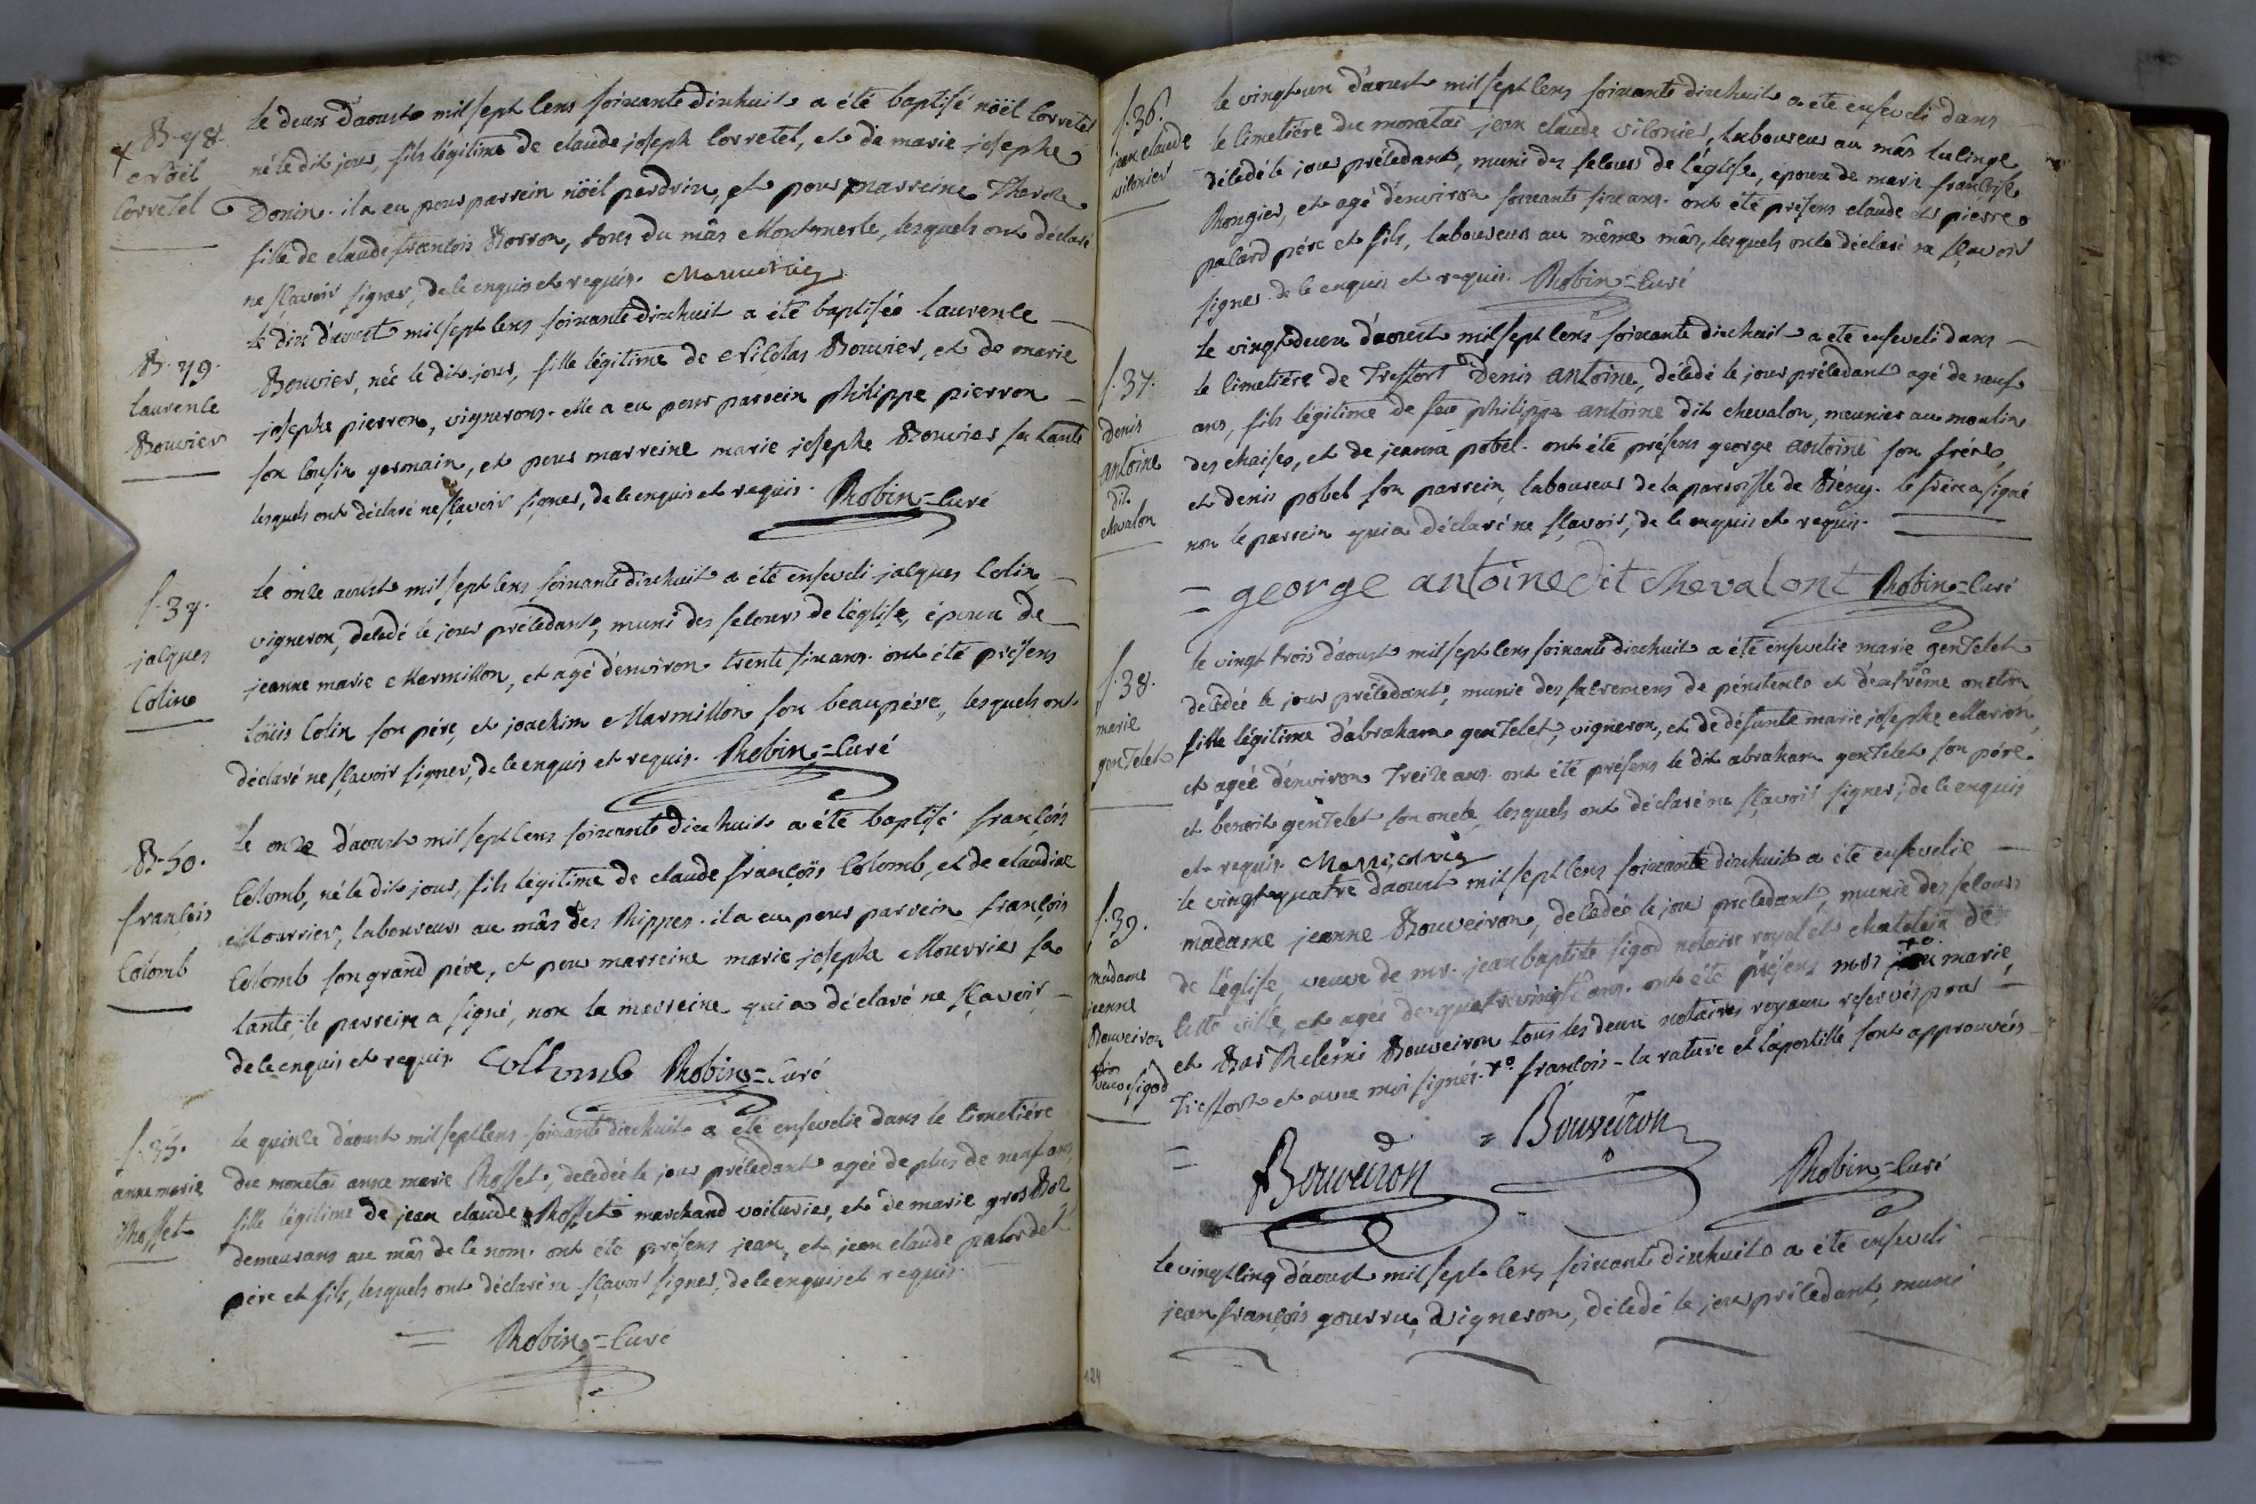 B. 48.
Noël
Corretel
le deux d'aoust mil sept cens soixante dixhuit a été baptisé nöel Corretel
né le dit jour, fils légitime de claude joseph Corretel, et de marie josephe
Donin. il a eu pour parrein nöel perdrix, et pour marreine Therese
fille de claude françois Borron, tous du mâs Montmerle, lesquels ont déclaré
ne sçavoir signer, de ce enquis et requis.
B. 49.
Laurence
Bouvier
le dix d'aoust mil sept cens soixante dixhuit a été baptisée Laurence
Bouvier, née le dit jour, fille légitime de Nicolas Bouvier, et de marie
josephe pierron, vignerons. elle a eu pour parrein philippe pierron
son cousin germain, et pour marreine marie josephe Bouvier sa tante
lesquels ont déclaré ne sçavoir signer, de ce enquis et requis. Robin = Curé
f. 34.
jacques
Colin
le onze aoust mil sept cens soixante dixhuit a été enseveli jacques Colin
vigneron, décedé le jour précedant, muni des secours de l'église, époux de
jeanne marie Marmillon, et agé d'environ trente six ans. ont été présens
Loüis Colin son pére, et joachim Marmillon son beaupére, lesquels ont
déclaré ne sçavoir signer, de ce enquis et requis. Robin = Curé
B. 50.
françois
Colomb
le onze d'aoust mil sept cens soixante dixhuit a été baptisé françois
Collomb, né le dit jour, fils légitime de claude françois Colomb, et de claudine
Mourrier, laboureurs au mâs des Rippes. il a eu pour parrein françois
Collomb son grand pére, et pour marreine marie josephe Mourrier sa
tante. le parrein a signé, non la marreine qui a déclaré ne sçavoir
de ce enquis et requis. Collomb Robin = Curé
f. 35.
anne marie
Rosset
le quinze d'aoust mil sept cens soixante dixhuit a été ensevelie dans le cimetiére
du monetai anne marie Rosset, décedée le jour précedant agée de plus de neuf ans
fille légitime de jean claude Rosset marchand voiturier, et de marie gros Boz
demeurans au mâs de ce nom. ont été présens jean, et jean claude palordet
pére et fils, lesquels ont déclaré ne sçavoir signer, de ce enquis et requis.
= Robin = Curé
f. 36.
jean claude
vilonier
le vingt un d'aoust mil sept cens soixante dixhuit a été enseveli dans
le cimetiére du monetai jean claude vilonier, laboureur au mâs
décedé le jour précedant, muni des secours de l'église, epoux de marie françoise
Rongier, et agé d'environ soixante six ans. ont été présens claude et pierre
palard pére et fils, laboureurs au même mâs, lesquels ont déclaré ne sçavoir
signer. de ce enquis et requis. Robin = Curé
f. 37.
Denis
antoine
dit
chevalon
le vingt deux d'aoust mil sept cens soixante dixhuit a été enseveli dans
le cimetiére de Treffort Denis antoine, décedé le jour précedant agé de neuf
ans, fils légitime de feu philippe antoine dit chevalon, meunier au moulin
des chaises, et de jeanne pobel. ont été présens george antoine son frére,
et denis pobel son parrein, laboureur de la parroisse de Bény. le frére a signé
non le parrein qui a déclaré ne sçavoir, de ce enquis et requis.
= george antoine dit chevalont Robin = Curé
f. 38.
marie
gentelet
le vingt trois d'aoust mil sept cens soixante dixhuit a été ensevelie marie gentelet
décedée le jour précedant, munie des sacremens de pénitence et d'extrême onction
fille légitime d'abraham gentelet, vigneron, et de défunte marie josephe Marion,
et agée d'environ treize ans. ont été présens le dit abraham gentelet son pére
et benoit gentelet son oncle, lesquels ont déclaré ne sçavoir signer, de ce enquis
et requis.
f. 39.
madame
jeanne
Bouveiron
veuve sigod
le vingt quatre d'aoust mil sept cens soixante dixhuit a été ensevelie
madame jeanne Bouveiron, décedée le jour précedant, munie des secours
de l'église, veuve de mr. jean baptiste sigod notaire royal et chatelain de
cette ville, et agée de quatrevingt ans. ont été présens mrs marie
et Barthelemi Bouveiron tous les deux notaires royaux reservés pour
Treffort et avec moi signés. françois - la rature et l'apostille sont approuvées
= Bouveiron = Bouveiron Robin = Curé
le vingt cinq d'aoust mil sept cens soixante dixhuit a été enseveli
jean françois gourru, vigneron, décedé le jour précedant, muni
124